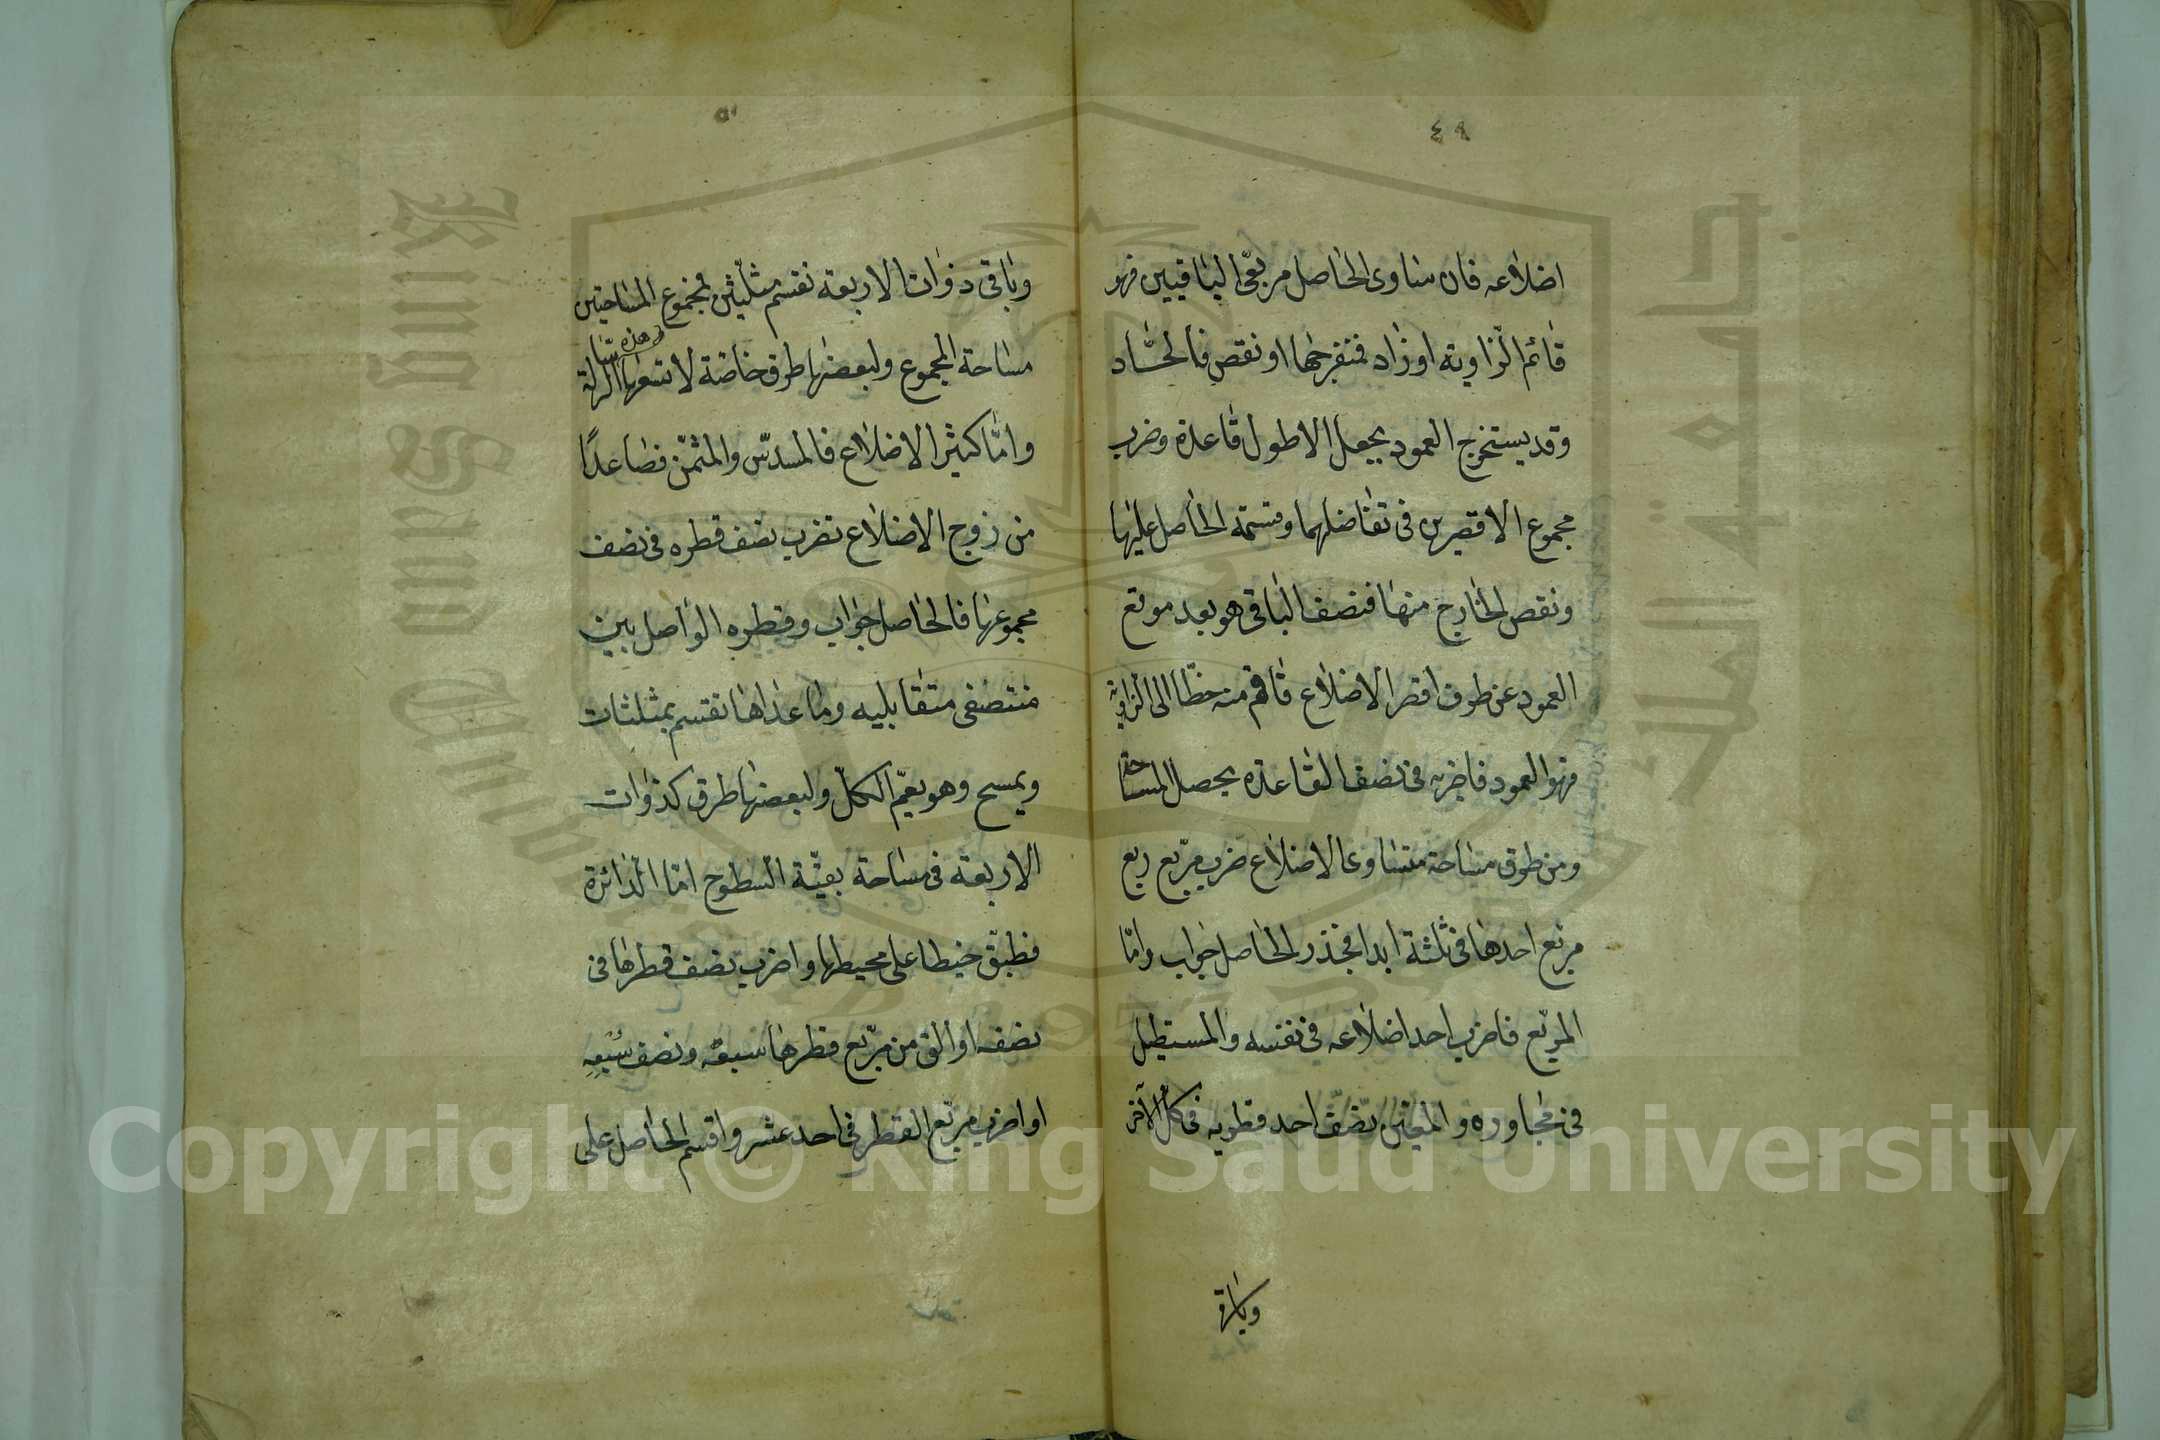 ٤٩
اضلاعه فان ساوى الحاصل مربعى الباقيين فهو
قائم الزاوية او زاد فمنفرجها او نقص فالحاد
وقد يستخرج العمود بجعل الاطول قاعدة وضرب
مجموع الاقصرين فى تفاضلهما وقسمة الحاصل عليها
ونقص الخارج منها فنصف الباقى هو بعد موقع
العمود عن طرف اقصر الاضلاع فاقم منه خطا الى الزاوية
فهو العمود فاضربه فى نصف القاعدة يحصل المساحة
ومن طرق مساحة متساوى الاضلاع ضرب مربع ربع
مربع احدها فى ثلثة ابدا فجذر الحاصل جواب واما
المربع فاضرب احد اضلاعه فى نفسه والمستطيل
فى مجاوره والمعين نصف احد قطريه فى كل الآخر
وباقى
٥٠
وباقى ذوات الاربعة تقسم مثلثين فمجموع المساحتين
مساحة المجموع ولبعضها طرق خاصة لا تسعها هذه الرسالة
واما كثير الاضلاع فالمسدس والمثمن فصاعدًا
من زوج الاضلاع تضرب نصف قطره فى نصف
مجموعها فالحاصل جواب وقطره الواصل بين
منتصفى متقابليه وما عداها تقسم بمثلثات
ويمسح وهو يعم الكل ولبعضها طرق كذوات
الاربعة فى مساحة بقية السطوح اما الدائرة
فطبق خيطا على محيطها واضرب نصف قطرها فى
نصفه او الق من مربع قطرها سبعه ونصف سُبعِهِ
او اضرب مربع القطر فى احد عشر واقسم الحاصل على
Copyright © King Saud University
King Saud University
جامعة الملك سعود
1957